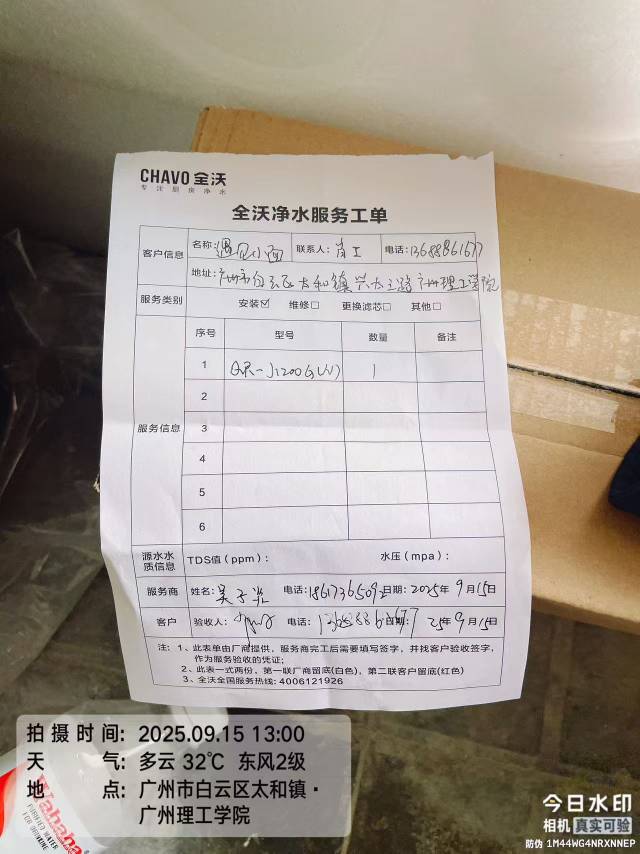 CHAVO 全沃
专注厨房净水
全沃净水服务工单
客户信息
名称: 遇见小面 联系人: 肖工 电话: 13688861677
地址: 广州市白云区太和镇兴太三路广州理工学院
服务类别 安装☑ 维修□ 更换滤芯□ 其他□
服务信息
序号 型号 数量 备注
1 1
2
3
4
5
6
源水水质信息 TDS值(ppm): 水压(mpa):
服务商 姓名: 电话: 日期: 2025年9月15日
客户 验收人: 电话: 25年9月15日
注: 1、此表单由厂商提供,服务商完工后需要填写签字,并找客户验收签字,
作为服务验收的凭证;
2、此表一式两份,第一联厂商留底(白色),第二联客户留底(红色)
3、全沃全国服务热线: 4006121926
拍摄时间: 2025.09.15 13:00
天气: 多云 32℃ 东风2级
地点: 广州市白云区太和镇·
广州理工学院
Wahaha
PURIFIED WATER
FOR DRINKING
今日水印
相机 真实可验
防伪 1M44WG4NRXNNEP